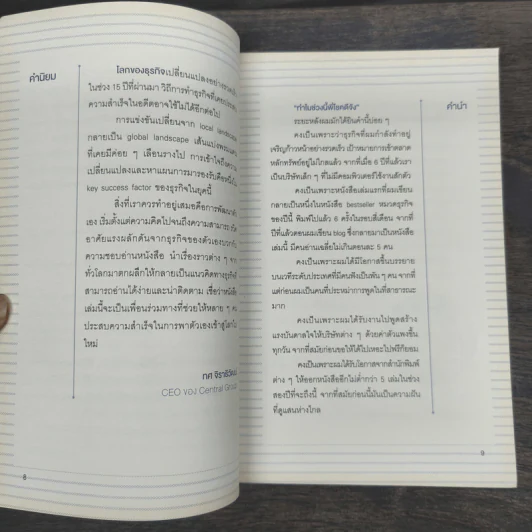 คำนิยม
โลกของธุรกิจเปลี่ยนแปลงอย่างรวดเร็ว
ในช่วง 15 ปีที่ผ่านมา วิถีการทำธุรกิจที่เคยประสบ
ความสำเร็จในอดีตอาจใช้ไม่ได้อีกต่อไป
การแข่งขันเปลี่ยนจาก local landscape
กลายเป็น global landscape เส้นแบ่งพรมแดน
ที่เคยมีค่อย ๆ เลือนรางไป การเข้าใจถึงความ
เปลี่ยนแปลงและหาแผนการมารองรับคือหนึ่งใน
key success factor ของธุรกิจในยุคนี้
สิ่งที่เราควรทำอยู่เสมอคือการพัฒนาตัว
เอง เริ่มตั้งแต่ความคิดไปจนถึงความสามารถ
อาศัยแรงผลักดันจากธุรกิจของตัวเองบวกกับ
ความชอบอ่านหนังสือ นำเรื่องราวต่าง ๆ จาก
ทั่วโลกมาตกผลึกให้กลายเป็นแนวคิดทางธุรกิจที่
สามารถอ่านได้ง่ายและน่าติดตาม เชื่อว่าหนังสือ
เล่มนี้จะเป็นเพื่อนร่วมทางที่ช่วยให้หลาย ๆ คน
ประสบความสำเร็จในการพาตัวเองเข้าสู่โลก
ใหม่
ทศ จิราธิวัฒน์
CEO ของ Central Group
8
คำนำ
"ทำไมช่วงนี้พี่โชคดีจัง"
ระยะหลังผมมักได้ยินคำนี้บ่อย ๆ
คงเป็นเพราะว่าธุรกิจที่ผมกำลังทำอยู่
เจริญก้าวหน้าอย่างรวดเร็ว เป้าหมายการเข้าตลาด
หลักทรัพย์อยู่ไม่ไกลแล้ว จากที่เมื่อ 6 ปีที่แล้วเรา
เป็นบริษัทเล็ก ๆ ที่ไม่มีคอมพิวเตอร์ใช้งานสักตัว
คงเป็นเพราะหนังสือเล่มแรกที่ผมเขียน
กลายเป็นหนึ่งในหนังสือ bestseller หมวดธุรกิจ
ของปีนี้ พิมพ์ไปแล้ว 6 ครั้งในรอบสี่เดือน จากที่
ปีที่แล้วตอนผมเขียน blog ซึ่งกลายมาเป็นหนังสือ
เล่มนี้ มีคนอ่านเฉลี่ยไม่เกินตอนละ 5 คน
คงเป็นเพราะผมได้มีโอกาสขึ้นบรรยาย
บนเวทีระดับประเทศที่มีคนฟังเป็นพัน ๆ คน จากที่
แต่ก่อนผมเป็นคนที่ประหม่าการพูดในที่สาธารณะ
มาก
คงเป็นเพราะผมได้รับงานไปพูดสร้าง
แรงบันดาลใจให้บริษัทต่าง ๆ ด้วยค่าตัวแพงขึ้น
ทุกวัน จากที่สมัยก่อนขอให้ได้ไปเหอะไปฟรีก็ยอม
คงเป็นเพราะผมได้รับโอกาสจากสำนักพิมพ์
ต่าง ๆ ให้ออกหนังสืออีกไม่ต่ำกว่า 5 เล่มในช่วง
สองปีที่จะถึงนี้ จากที่สมัยก่อนนี้มันเป็นความฝัน
ที่ดูแสนห่างไกล
9